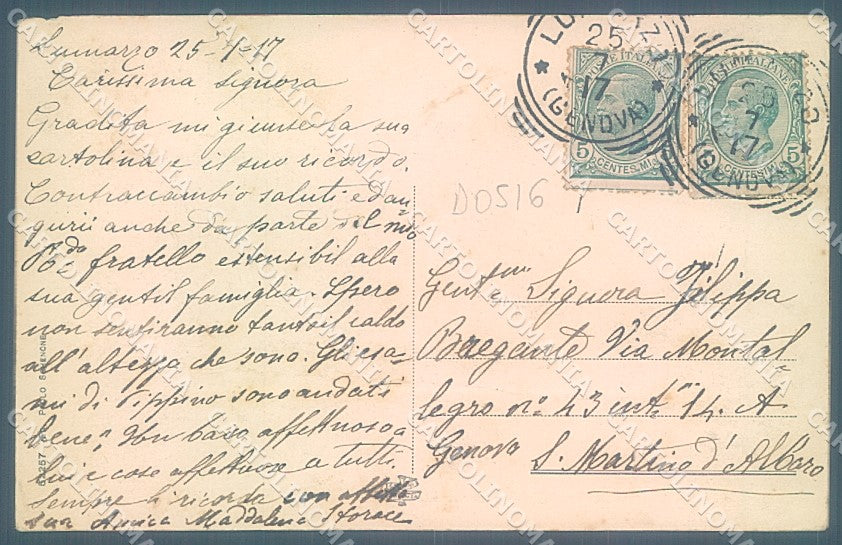 Lumarzo 25-7-17
Carissima Signora
Gradita mi giunse la sua
cartolina e il suo ricordo.
Contraccambio saluti ed au-
gurii anche da parte del mio
fratello estensibil alla
sua gentil famiglia. Spero
non sentiranno tanto il caldo
all'altezza che sono. Gli esa-
mi di Pippino sono andati
bene. Un bacio affettuoso a
lui e cose affettuose a tutti.
Sempre si ricorda con affetto
sua Amica Maddalena Storace
D0516
Gent.ma Signora Filippa
Bregante Via Montal-
legro nº 43 int. 14. A
Genova S. Martino d'Albaro
POSTE ITALIANE
CENTESIMI 5
25 7 17
(GENOVA)
POSTE ITALIANE
CENTESIMI 5
7 17
(GENOVA)
CARTOLINOMANIA